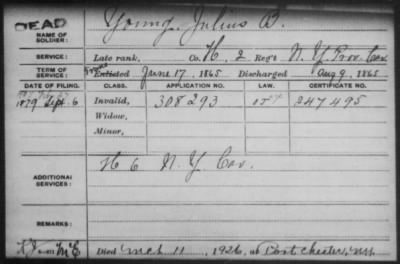 DEAD
NAME OF SOLDIER: Young, Julius B.
SERVICE: Late rank, Co. H, 2 Reg't N. Y. Prov. Cav.
TERM OF SERVICE: Enlisted June 17, 1865 Discharged Aug 9, 1865
DATE OF FILING. CLASS. APPLICATION NO. LAW. CERTIFICATE NO.
1879 Sept. 6 Invalid, 308293 247495
Widow,
Minor,
ADDITIONAL SERVICES: H 6 N. Y. Cav.
REMARKS:
Died Mch 11, 1926, at Port Chester, N.Y.